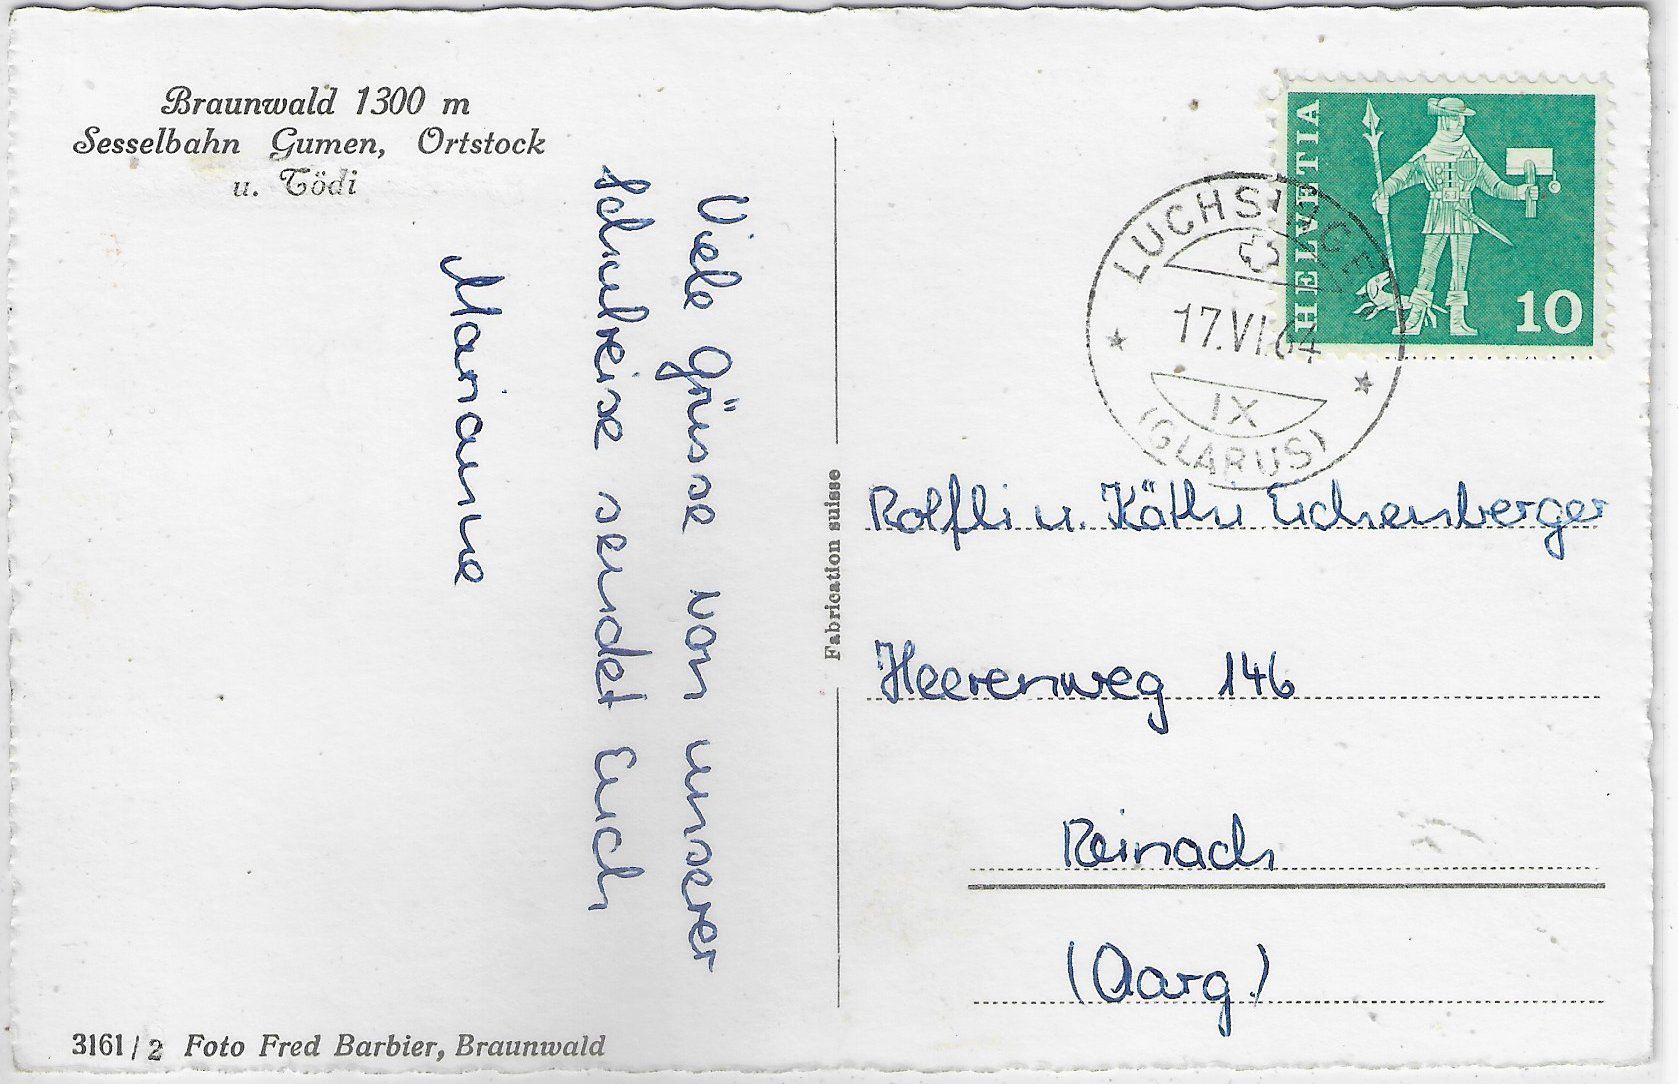 Braunwald 1300 m
Sesselbahn Gumen, Ortstock
u. Tödi
Viele Grüsse von unserer
Schulreise sendet Euch
Marianne
3161/2 Foto Fred Barbier, Braunwald
Fabrication suisse
HELVETIA
10
LUCHSINGEN
17.VI.64
IX
(GLARUS)
Rolfli u. Käthi Eichenberger
Heerenweg 146
Reinach
(Aarg.)